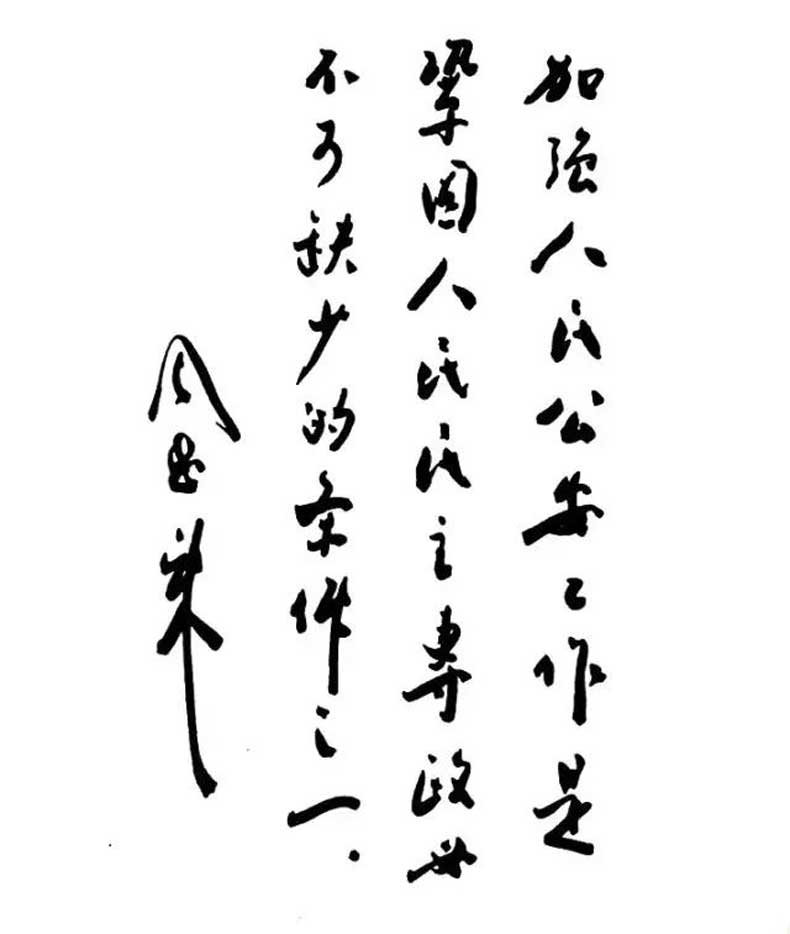 加强人民公安工作是
鞏固人民民主專政
不可缺少的条件之一。
周恩来